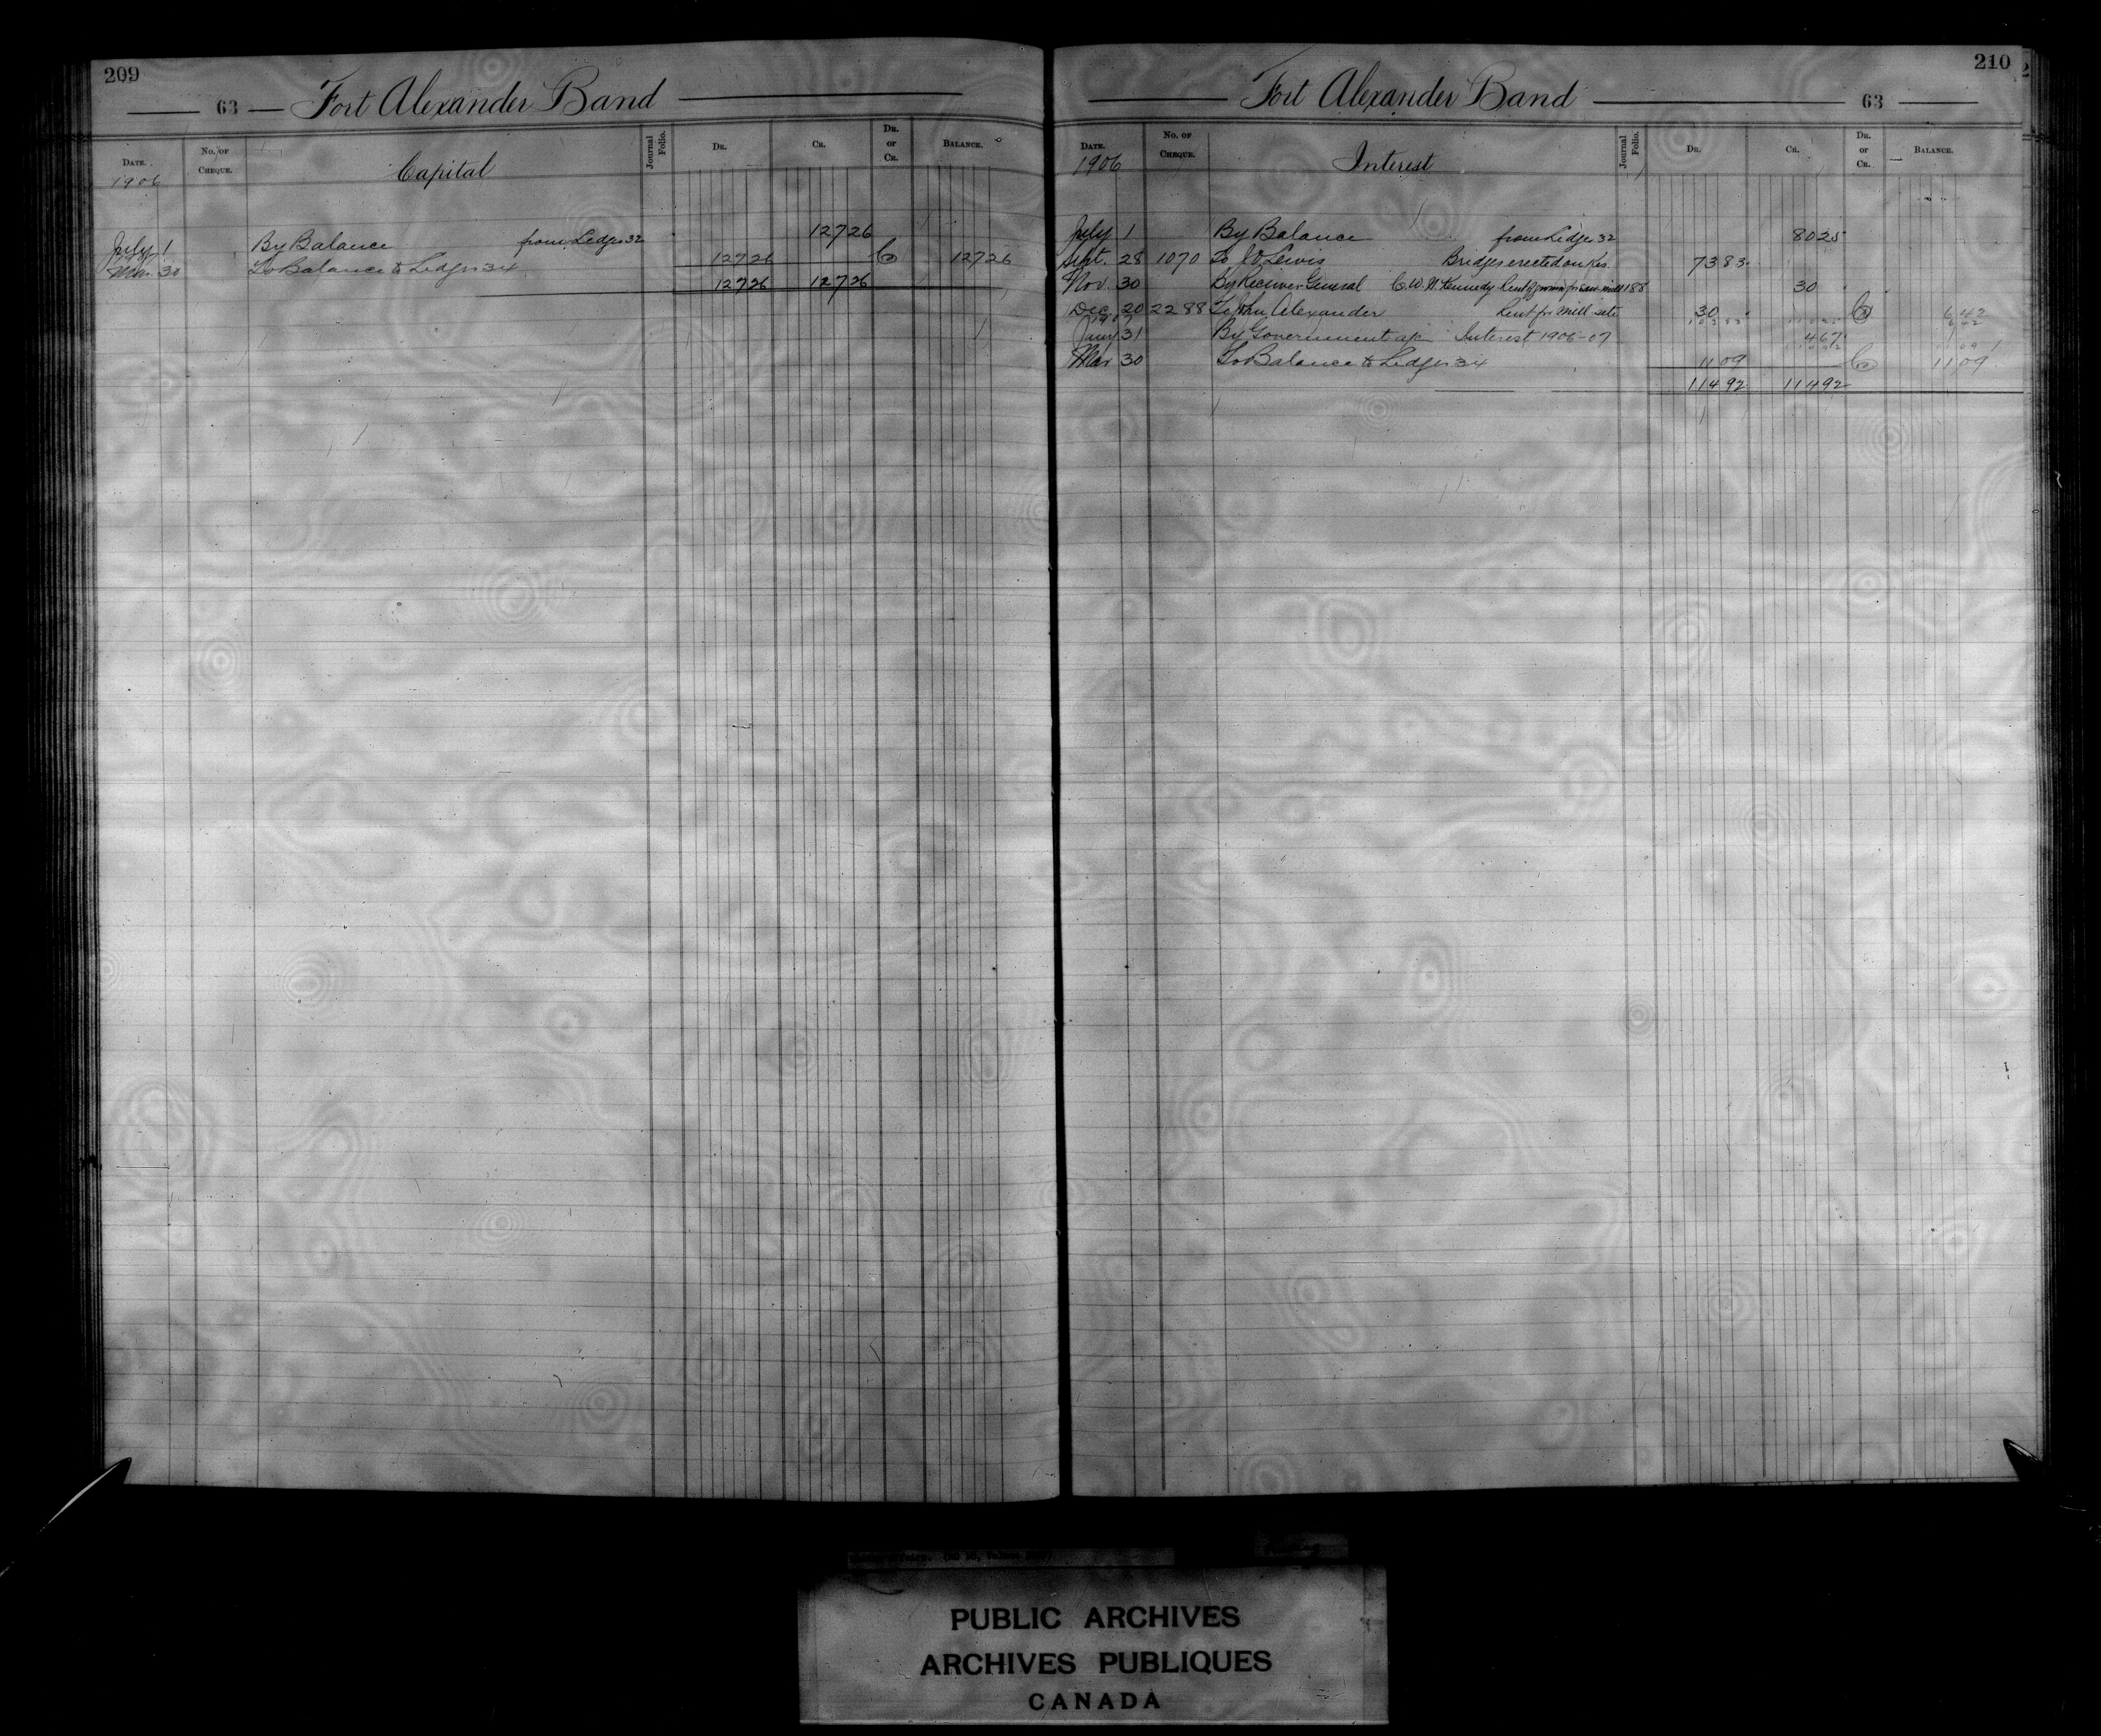 209
63 Fort Alexander Band
DATE. No. OF CHEQUE. Capital Journal Folio. DR. CR. DR. or CR. BALANCE.
1906
July 1 By Balance from Ledger 32 127 26
Mar. 30 To Balance to Ledger 34 127 26 Cr 127 26
127 26 127 26
210
Fort Alexander Band 63
DATE. No. OF CHEQUE. Interest Journal Folio. DR. CR. DR. or CR. BALANCE.
1906
July 1 By Balance from Ledger 32 80 25
Sept. 28 1070 To J. O. Lewis Bridges erected on Res. 73 83
Nov. 30 By Receiver General C. W. N. Kennedy Rent saw mill 188 30
Dec 20 2288 To John Alexander Rent for mill site 30 Cr 6 42
Jany 31 By Government a/c Interest 1906-07 4 67
Mar 30 To Balance to Ledger 34 11 09 Cr 11 09
114 92 114 92
PUBLIC ARCHIVES
ARCHIVES PUBLIQUES
CANADA